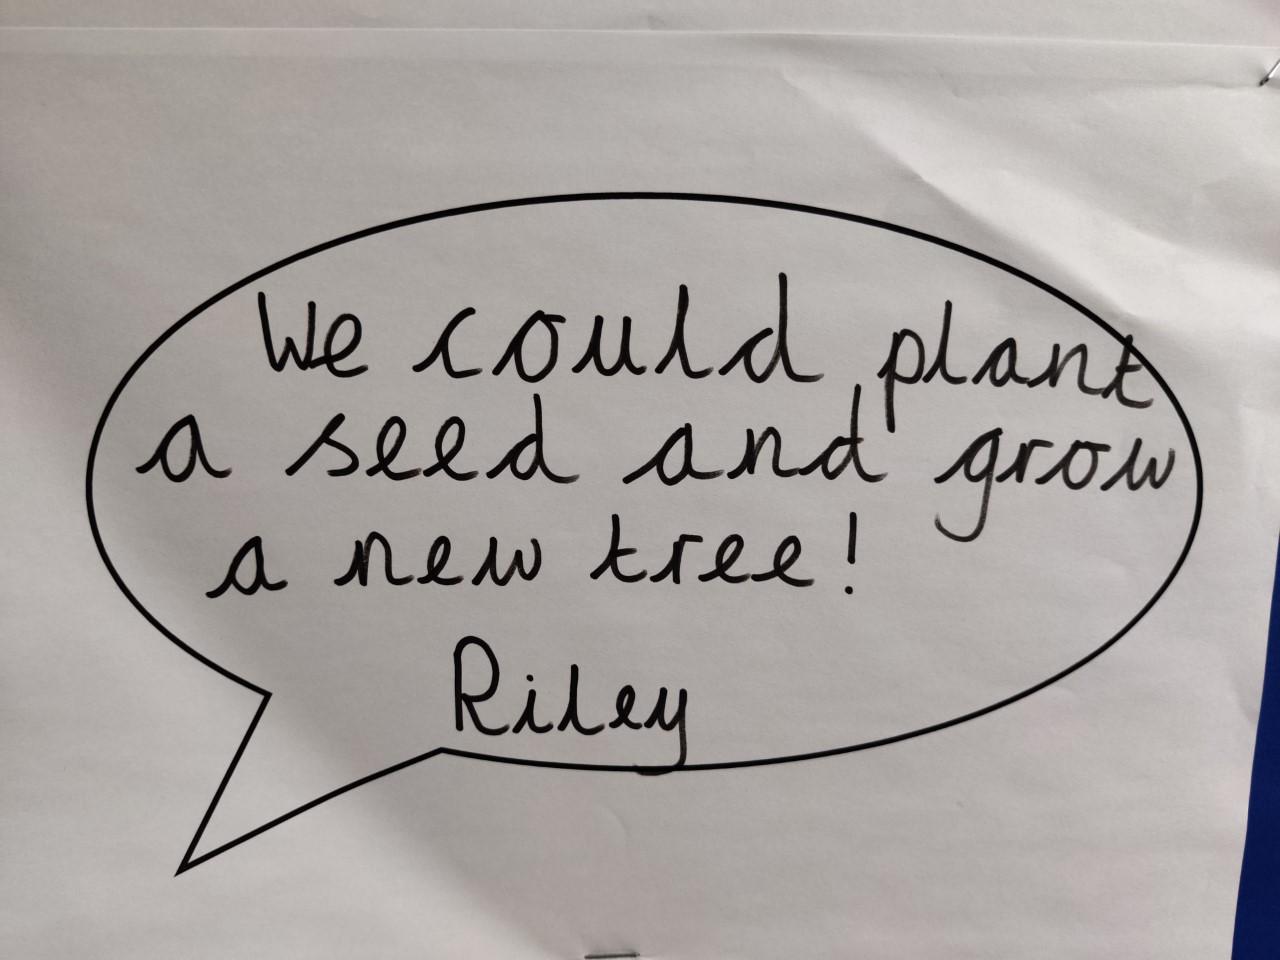 We could plant
a seed and grow
a new tree!
Riley